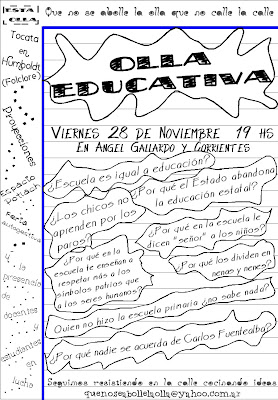 ESTA OLLA
Que no se abolle la olla que no calle la calle
Tocata
en
Humboldt
(Folclore)
Proyecciones
Espacio
Potlach
Feria
autogestiva
y
la
presencia
de
docentes
y
estudiantes
en
lucha
OLLA
EDUCATIVA
VIERNES 28 DE NOVIEMBRE 19 HS
EN ANGEL GALLARDO Y CORRIENTES
¿Escuela es igual a educación?
¿Por qué el Estado abandona
la educación estatal?
¿Los chicos no
aprenden por los
paros?
¿Por qué en la escuela te
dicen "señor" a los niños?
¿Por qué en la
escuela te enseñan a
respetar más a los
símbolos patrios que
a los seres humanos?
¿Por qué los dividen en
nenas y nenes?
Quien no hizo la escuela primaria ¿no sabe nada?
¿Por qué nadie se acuerda de Carlos Fuentealba?
Seguimos resistiendo en la calle cocinando ideas
quenoseabollelaolla@yahoo.com.ar